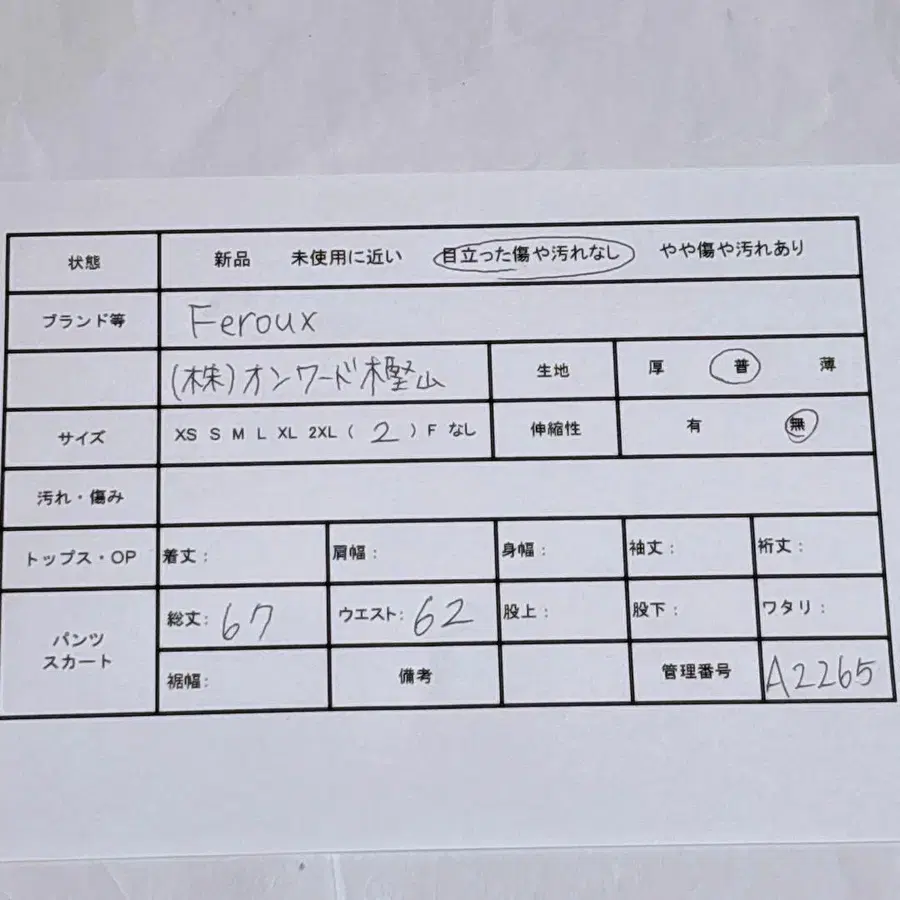 状態 新品 未使用に近い 目立った傷や汚れなし やや傷や汚れあり
ブランド等 Feroux
(株)オンワード樫山 生地 厚 普 薄
サイズ XS S M L XL 2XL ( 2 ) F なし 伸縮性 有 無
汚れ・傷み
トップス・OP 着丈: 肩幅: 身幅: 袖丈: 裄丈:
パンツ
スカート
総丈: 67 ウエスト: 62 股上: 股下: ワタリ:
裾幅: 備考 管理番号 A2265